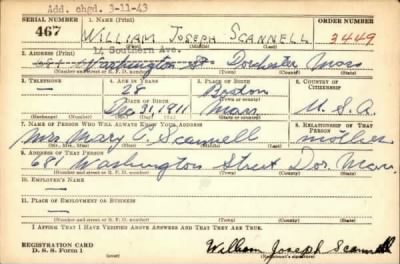 Add. chgd. 3-11-43
SERIAL NUMBER 1. NAME (Print)
467 WILLIAM JOSEPH SCANNELL 3449
(First) (Middle) (Last) ORDER NUMBER
14 Southern Ave.
2. ADDRESS (Print)
681 Washington St Dorchester Mass
(Number and street or R. F. D. number) (Town) (County) (State)
3. TELEPHONE 4. AGE IN YEARS 5. PLACE OF BIRTH 6. COUNTRY OF CITIZENSHIP
— 28 Boston
DATE OF BIRTH (Town or county)
Dec 31 1911 Mass U.S.A.
(Exchange) (Number) (Mo.) (Day) (Yr.) (State or country)
7. NAME OF PERSON WHO WILL ALWAYS KNOW YOUR ADDRESS 8. RELATIONSHIP OF THAT PERSON
Mrs Mary Scannell mother
(Mr., Mrs., Miss) (First) (Middle) (Last)
9. ADDRESS OF THAT PERSON
681 Washington Street Dor. Mass.
(Number and street or R. F. D. number) (Town) (County) (State)
10. EMPLOYER'S NAME
—
11. PLACE OF EMPLOYMENT OR BUSINESS
—
(Number and street or R. F. D. number) (Town) (County) (State)
I AFFIRM THAT I HAVE VERIFIED ABOVE ANSWERS AND THAT THEY ARE TRUE.
REGISTRATION CARD
D. S. S. Form 1 William Joseph Scannell
(Registrant's signature)